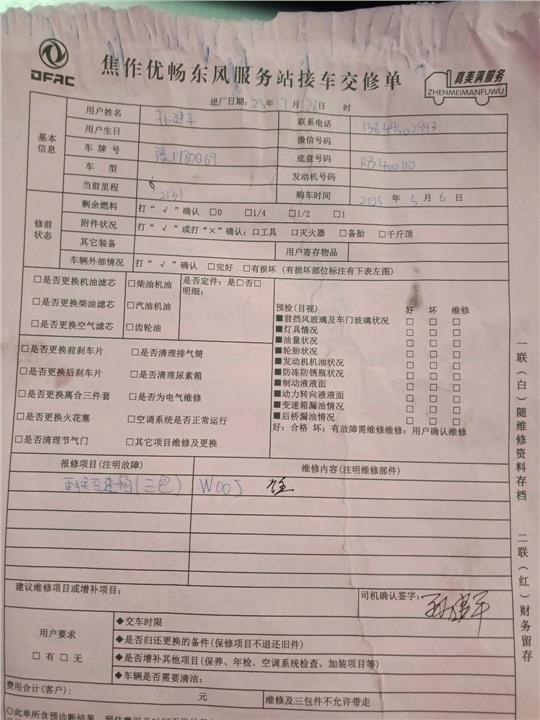 DFAC
焦作优畅东风服务站接车交修单
真美满服务
ZHENMEIMANFUWU
进厂日期: 25年 7月 28日 时
基本信息
用户姓名
联系电话
用户生日
微信号码
车牌号
底盘号码
车型
发动机号码
当前里程 2131
购车时间 2025 年 5 月 6 日
修前状态
剩余燃料 打“√”确认 □0 □1/4 □1/2 □1
附件状况 打“√”或打“×”确认: □工具 □灭火器 □备胎 □千斤顶
其它装备
用户寄存物品
车辆外部情况 打“√”确认 □完好 □有损坏 (有损坏部位标注有下表左图)
□是否更换机油滤芯 □柴油机油
□是否更换柴油滤芯 □汽油机油
□是否更换空气滤芯 □齿轮油
是否定件: 是□否□
明细:
□是否更换前刹车片 □是否清理排气筒
□是否更换后刹车片 □是否清理尿素箱
□是否更换离合三件套 □是否为电气维修
□是否更换火花塞 □空调系统是否正常运行
□是否清理节气门 □其它项目维修及更换
预检(目视) 好 坏 维修
■前挡风玻璃及车门玻璃状况 □ □ □
■灯具情况 □ □ □
■油量状况 □ □ □
■轮胎状况 □ □ □
■发动机机油状况 □ □ □
■防冻防锈瓶状况 □ □ □
■制动液液面 □ □ □
■动力转向液液面 □ □ □
■变速箱漏油情况 □ □ □
■后桥漏油情况 □ □ □
好: 合格 坏: 有故障需维修维修: 用户确认维修
报修项目(注明故障)
维修内容(注明维修部件)
(三包)
W005
建议维修项目或增补项目:
司机确认签字:
用户要求
□有 □无
◆交车时限
◆是否归还更换的备件(保修项目不退还旧件)
◆是否增补其他项目(保养、年检、空调系统检查、加装项目等)
◆车辆是否需要清洁:
费用合计(客户): 元
维修及三包件不允许带走
一联(白)随维修资料存档
二联(红)财务留存